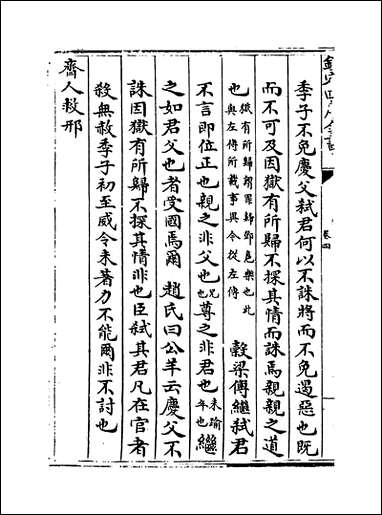 季子不免慶父弑君何以不誅將而不免遏惡也既
而不可及因獄有所歸不探其情而誅焉親親之道
也獄有所歸謂罪歸鄧扈樂也此與左傳所載事異今從左傳 穀梁傳繼弑君
不言即位正也親之非父也兄尊之非君也未踰年也繼
之如君父也者受國焉爾 趙氏曰公羊云慶父不
誅因獄有所歸不探其情非也臣弑其君凡在官者
殺無赦季子初至威令未著力不能爾非不討也
齊人救邢
卷四